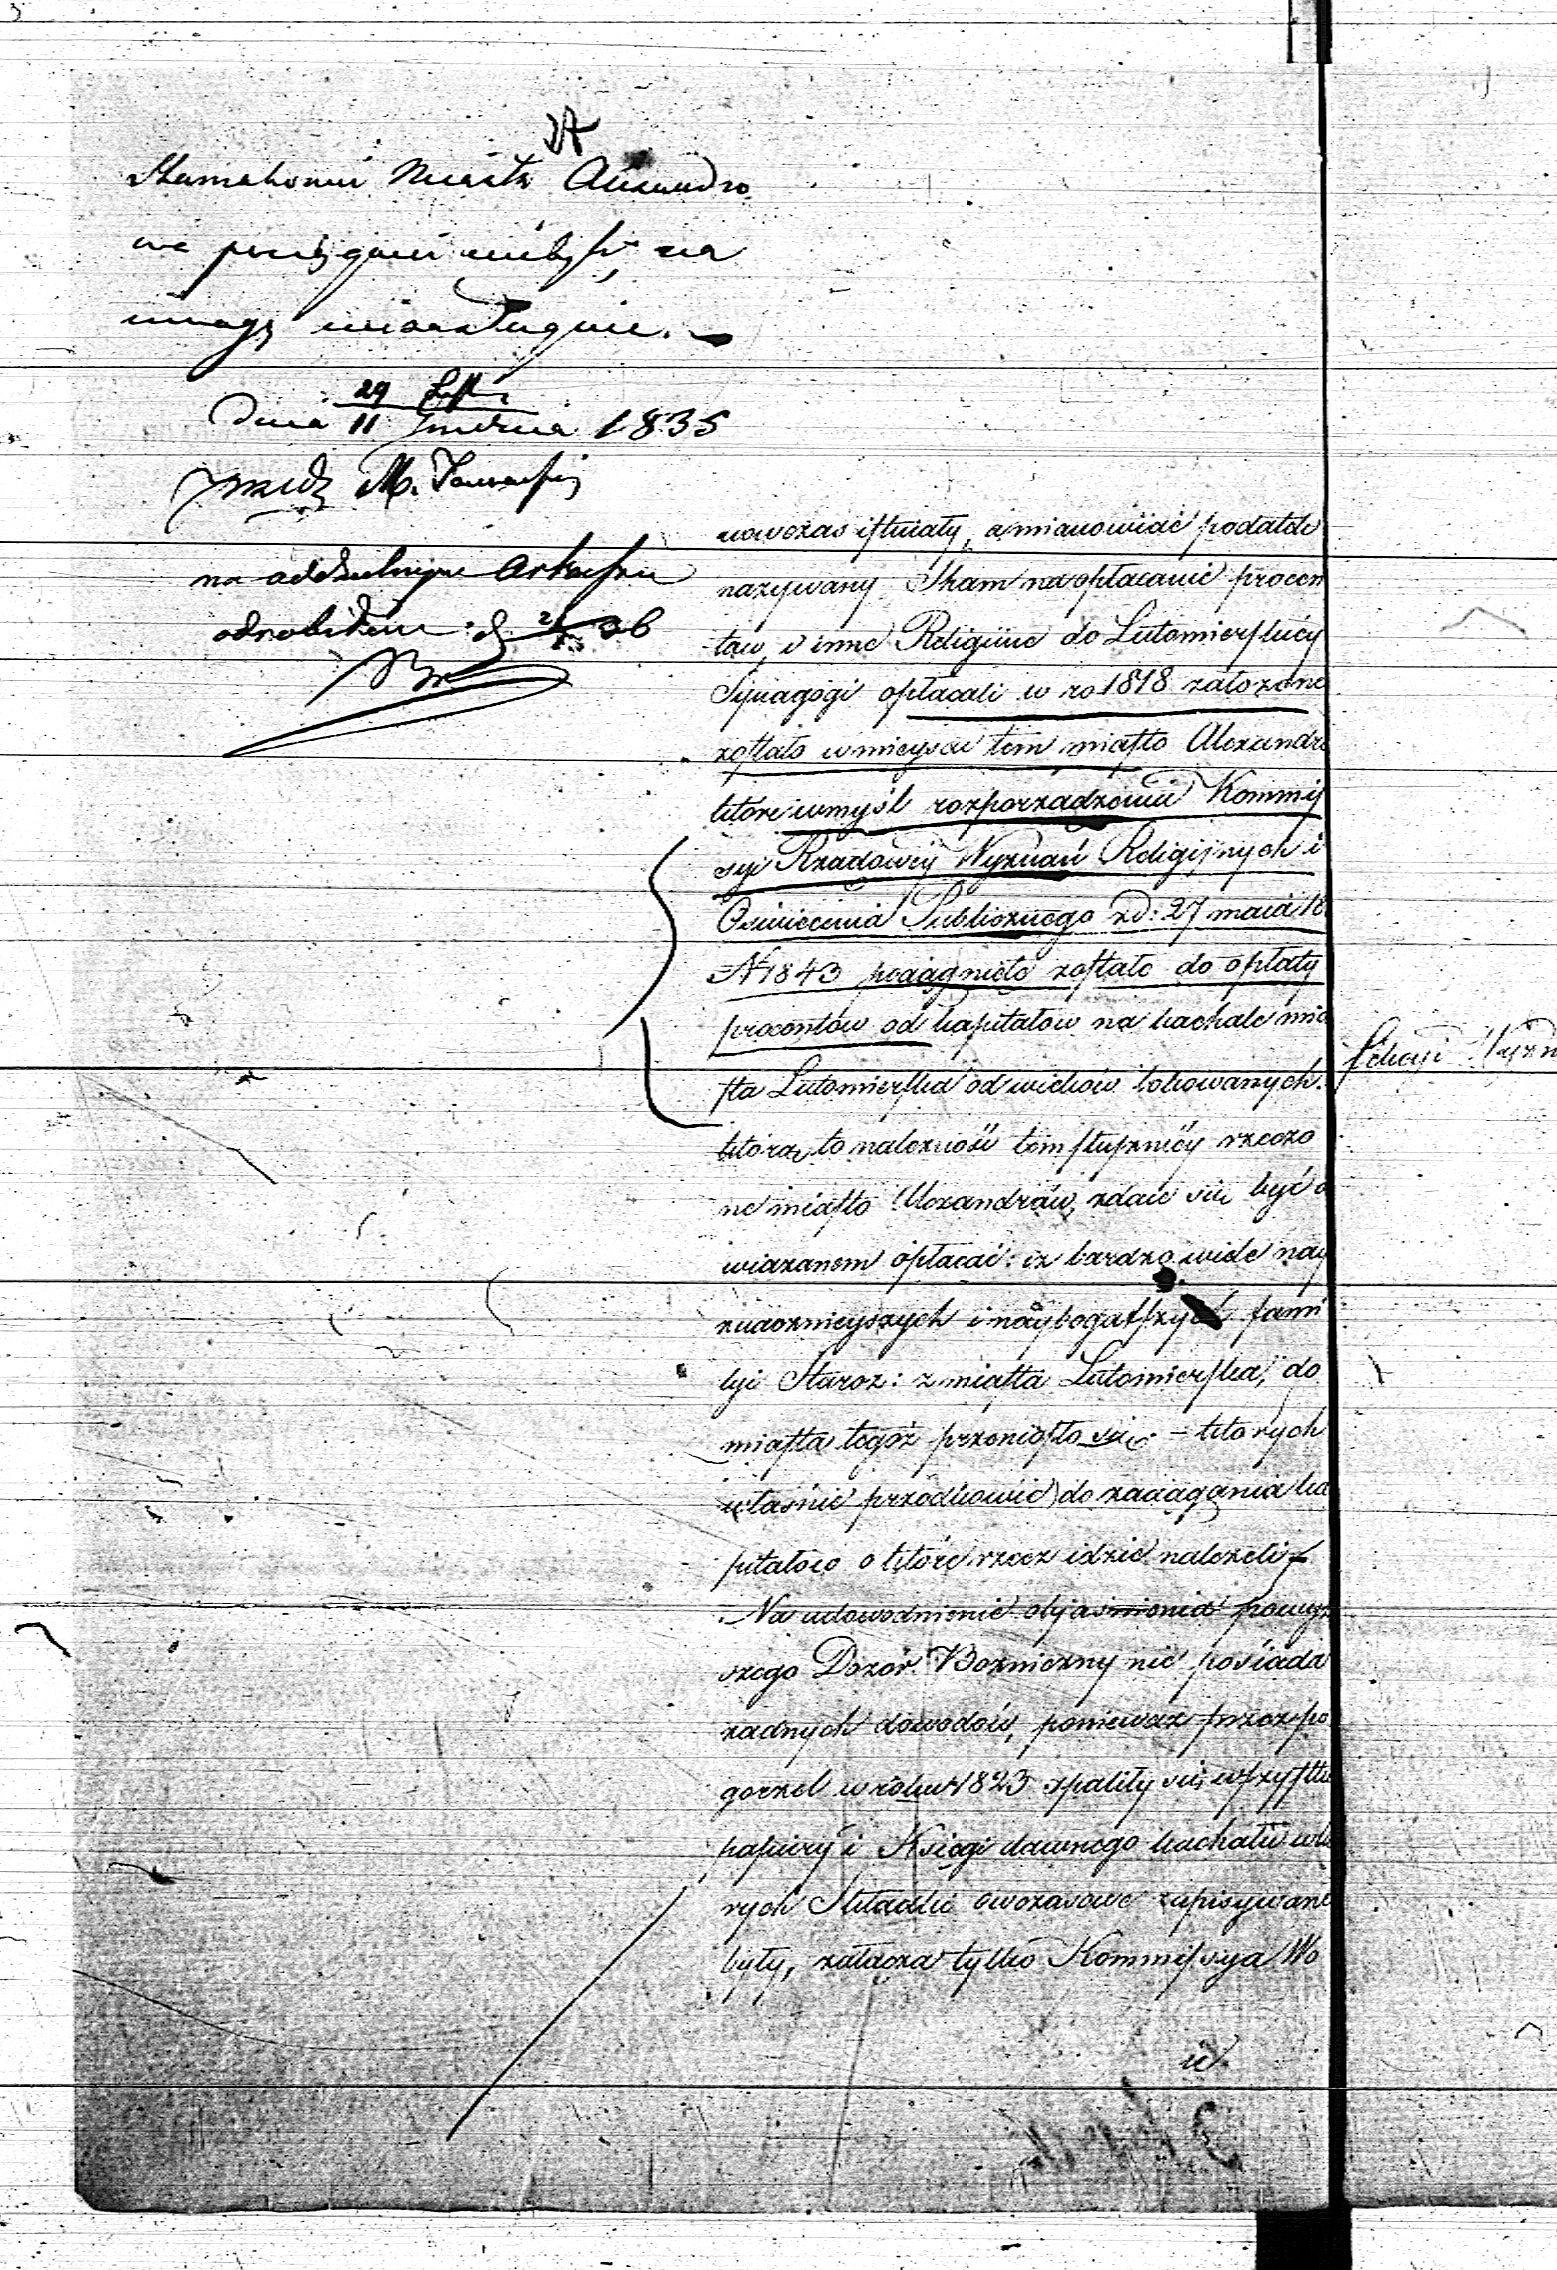 Tłumakowi Miasta Alexandro
wa
uwagę nie zasługuie.
29 List.
Dnia 11 Grudnia 1835
M.
na oddzielnym Arkuszu
odrobiono d 36
wowczas istniały, a mianowicie podatek
nazywany Skam na opłacanie procen
tow, i inne Religiine do Lutomierskiey
Synagogi opłacali w ro 1818 założone
zostało w mieyscu tem miasto Alexandr
które wmyśl rozporządzenia Kommis
syi Rządowey Wyznań Religijnych i
Oświecenia Publicznego z d: 27 maia 18
N 1843 pociągnięte zostało do opłaty
procentów od kapitałow na kachale mia
sta Lutomierska od wieków lokowanych.
którą to należność tem słuszniey rzeczo
ne miasto Alexandrów, zdaie się być o
wiązanem opłacać: iż bardzo wiele nay
znacznieyszych i naybogatszych fami
lyi Staroz: z miasta Lutomierska, do
miasta tegóż przeniosło się – których
właśnie przodkowie do zaciągania ka
pitałow o które rzecz idzie należeli –
Na udowodnienie obiasnienia powyż
szego Dozór Bożniczny nie posiada
żadnych dowodów, ponieważ przez po
gorzel w roku 1823 spaliły się wszystkie
papiery i Księgi dawnego kachału w któ
rych Składki owczasowe zapisywane
były, załącza tylko Kommissya Wo